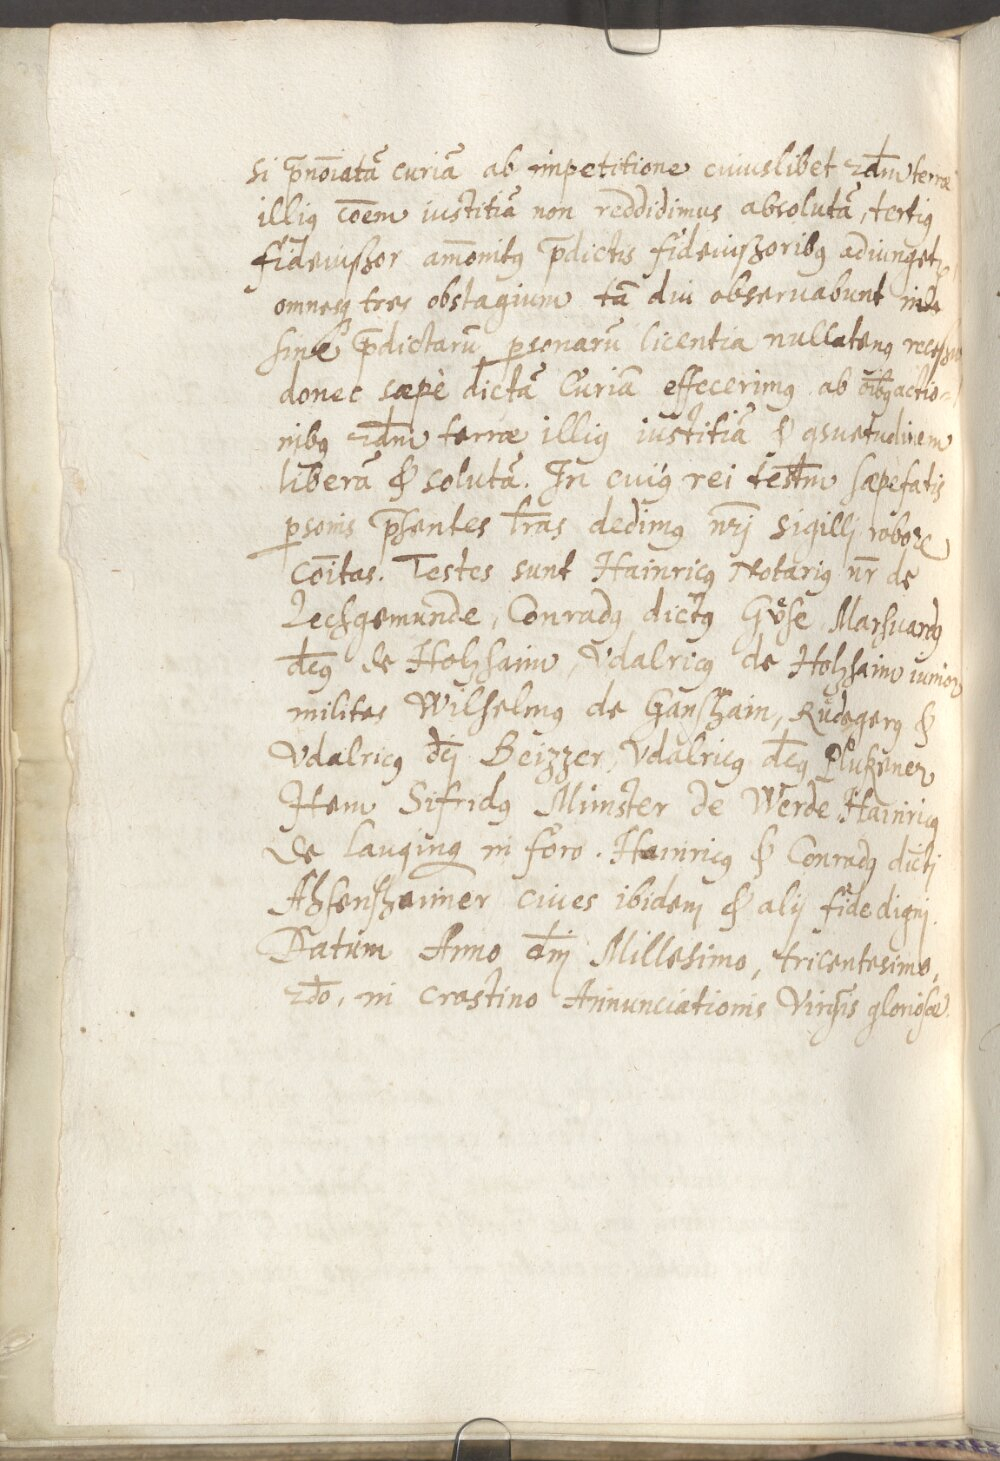 si p̄nōiatā curiā ab impetitione cuiuslibet 2dm̄ terræ
illi9 cōem iustitiā non reddidimus absolutā, terti9
fideiußor amōnitq p̄dictis fideiußorib9 adiunget2
omnesq3 tres obstagium tā diu obseruabunt inde
sine p̄dictarū ꝑsonarū licentia nullaten9
donec sæpè dictā Curiā effecerim9 ab oīb9 actio=
nib9 2dm̄ terræ illi9 iustitiā & 9suetudinem
liberā & solutā. In cui9 rei testm̄ sæpefatis
ꝑsonis p̄sentes lr̄as dedim9 nr̄j sigillj robore
cōitas. Testes sunt Hainric9 Notari9 nr̄ de
Lechgemunde, Conrad9 dict9 Göse Marhuard9
dc̄9 de Holzhaim, Vdalric9 de Holzhaim iunior
milites Wilhelm9 de Ganßhain, Rüdeger9 &
Vdalric9 dc̄j Beizzer, Vdalric9 dc̄9 Plukener
Item Sifrid9 Minster de Werde, Hainric9
de lauging in foro. Hainric9 & Conrad9 dictj
Ahsenßhaimer ciues ibidem & alij fide dignj.
Datum Anno dn̄j Millesimo, tricentesimo,
2do, in crastino Annunciationis Virgīs gloriosæ.